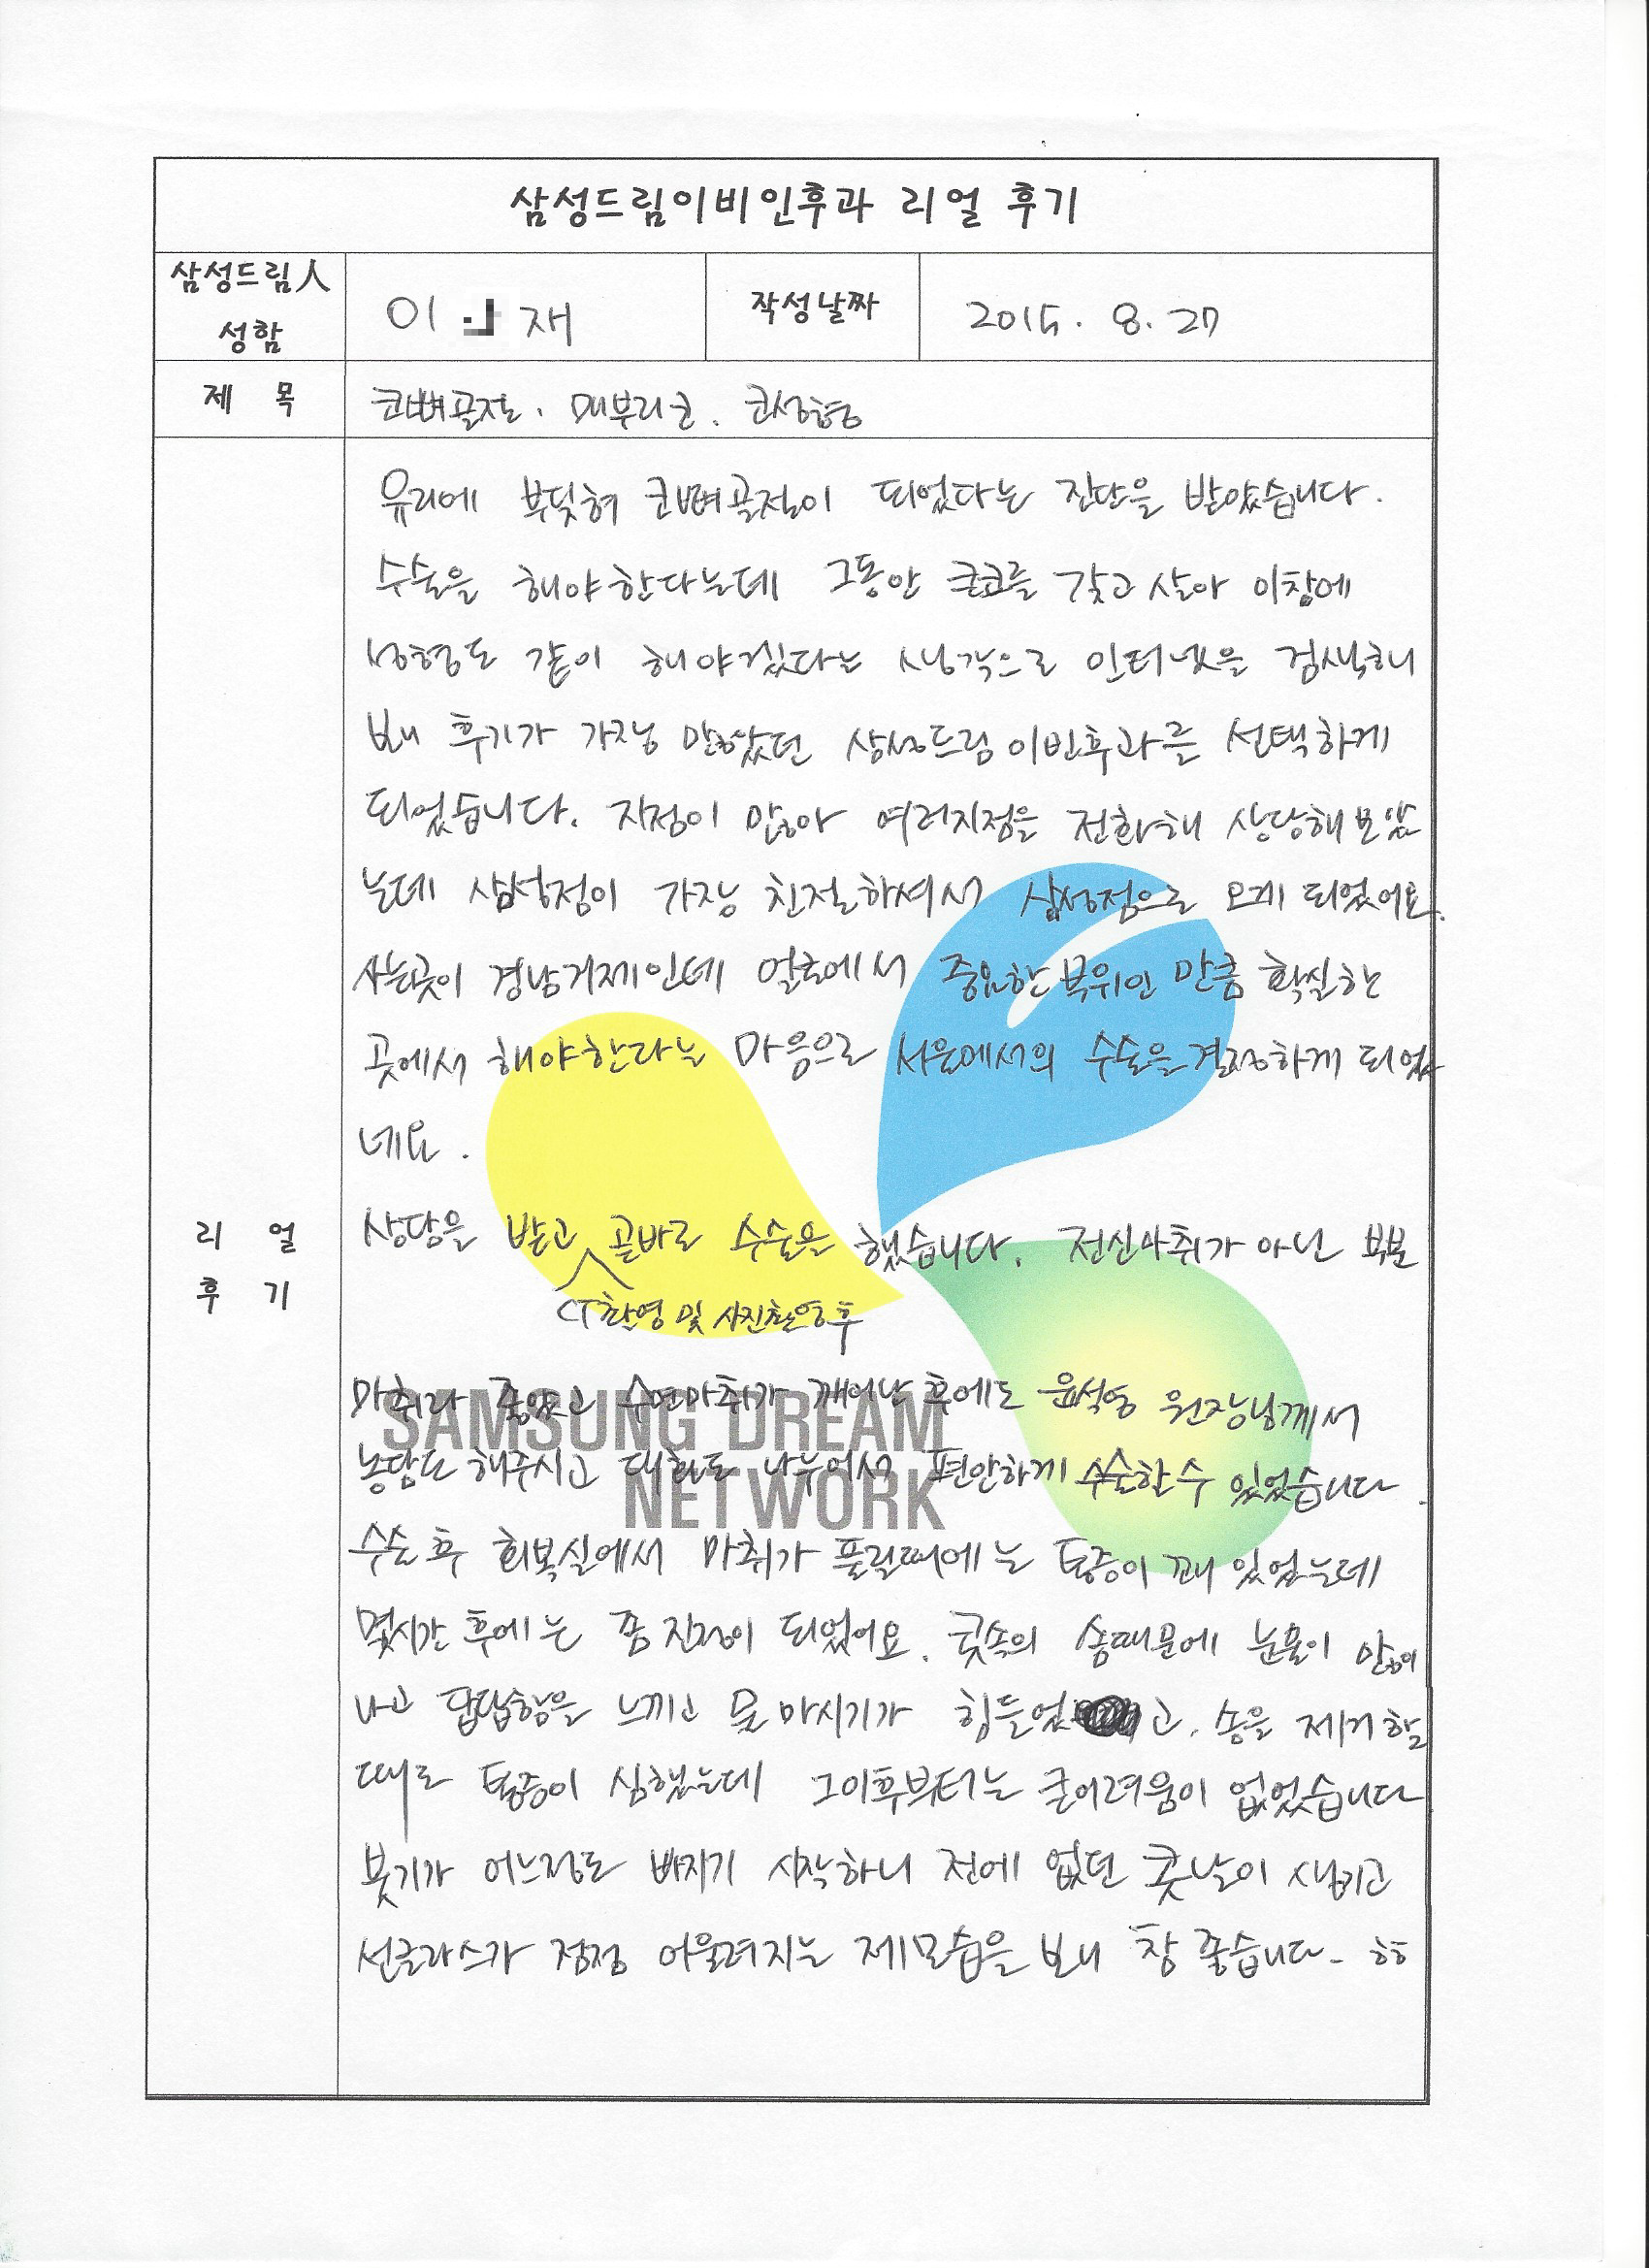 삼성드림이비인후과 리얼 후기
삼성드림人
성함
이 재
작성날짜
2015. 8. 27
제 목
코뼈골절. 매부리코. 코성형
유리에 부딪혀 코뼈골절이 되었다는 진단을 받았습니다.
수술을 해야한다는데 그동안 큰코를 갖고 살아 이참에
성형도 같이 해야겠다는 생각으로 인터넷을 검색해
보니 후기가 가장 많았던 삼성드림이빈후과를 선택하게
되었습니다. 지점이 많아 여러지점을 전화해 상담해보았
는데 삼성점이 가장 친절하셔서 삼성점으로 오게 되었어요.
사는곳이 경남거제인데 얼굴에서 중요한 부위인 만큼 확실한
곳에서 해야한다는 마음으로 서울에서의 수술을 결정하게 되었
네요.
리 얼
후 기
상담을 받고 곧바로 수술을 했습니다. 전신마취가 아닌 부분
CT촬영 및 사진촬영후
마취라 좋았고 수면마취가 깨어난 후에도 윤석영 원장님께서
농담도 해주시고 대화도 나누어서 편안하게 수술할수 있었습니다.
수술 후 회복실에서 마취가 풀릴때에는 통증이 꽤 있었는데
몇시간 후에는 좀 진정이 되었어요. 콧속의 솜때문에 눈물이 많이
나고 답답함을 느끼고 물 마시기가 힘들었고. 솜을 제거할
때도 통증이 심했는데 그이후부터는 큰어려움이 없었습니다
붓기가 어느정도 빠지기 시작하니 전에 없던 콧날이 생기고
선글라스가 점점 어울려지는 제모습을 보니 참 좋습니다- ㅎㅎ
SAMSUNG DREAM
NETWORK